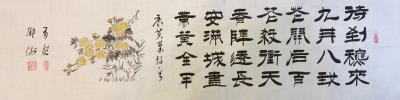 待到穐來
九月八我
花開后百
花殺衝天
香陣透長
安滿城盡
帶黃金甲